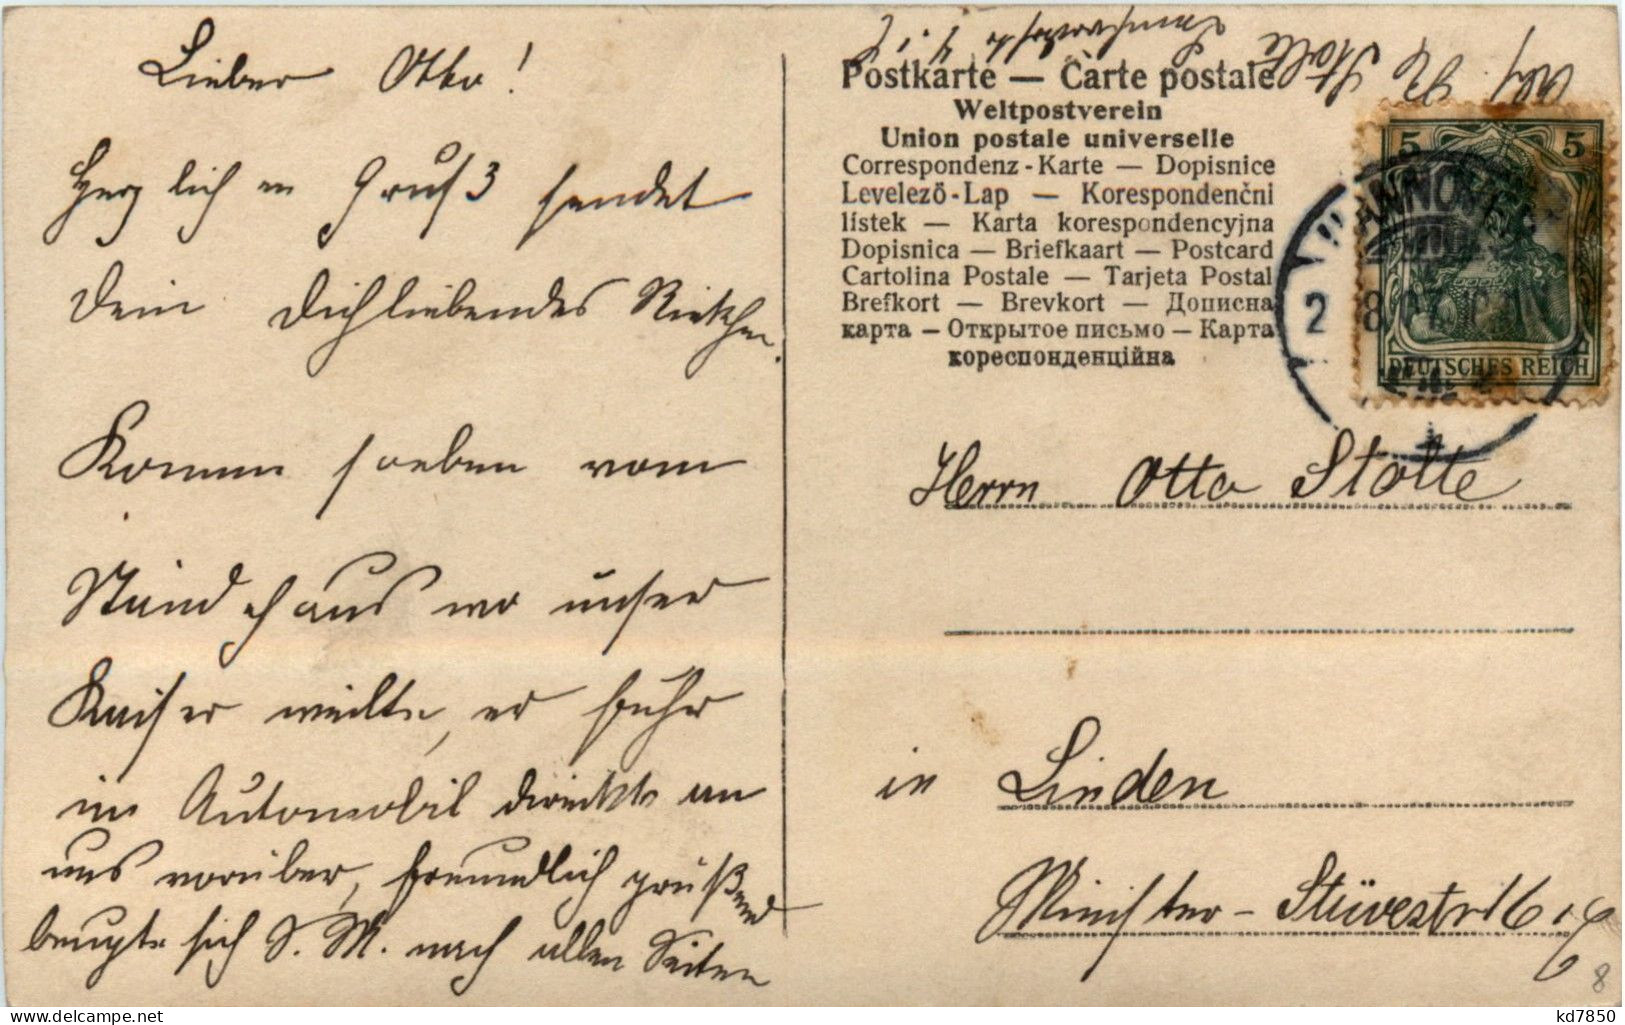 Lieber Otto!
Herzlichen Gruß sendet
Dein Dichliebendes Riekchen.
Komme soeben vom
Ständehaus wo unser
Kaiser weilte, er fuhr
im Automobil direkte an
uns vorüber, freundlich grüßend
beugte sich S. M. nach allen Seiten
Stolte
Postkarte — Carte postale
Weltpostverein
Union postale universelle
Correspondenz-Karte — Dopisnice
Levelező-Lap — Korespondenčni
listek — Karta korespondencyjna
Dopisnica — Briefkaart — Postcard
Cartolina Postale — Tarjeta Postal
Brefkort — Brevkort — Дописна
карта — Открытое письмо — Карта
кореспонденційна
5 5
DEUTSCHES REICH
HANNOVER
Herrn Otto Stolte
in Linden
Minister-Stüvestr 16
8
kd7850